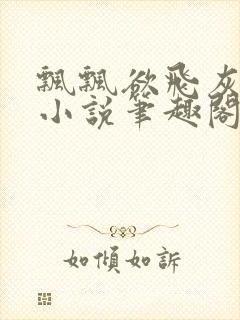 飄飄欲飛灰
小說筆趣閣
如傾如訴